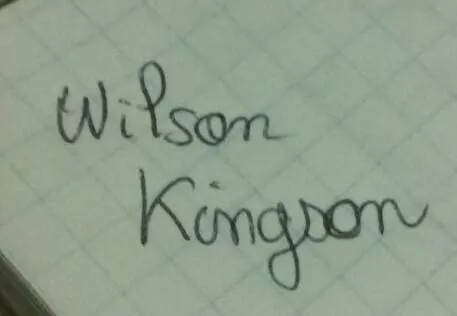 Wilson
Kingson